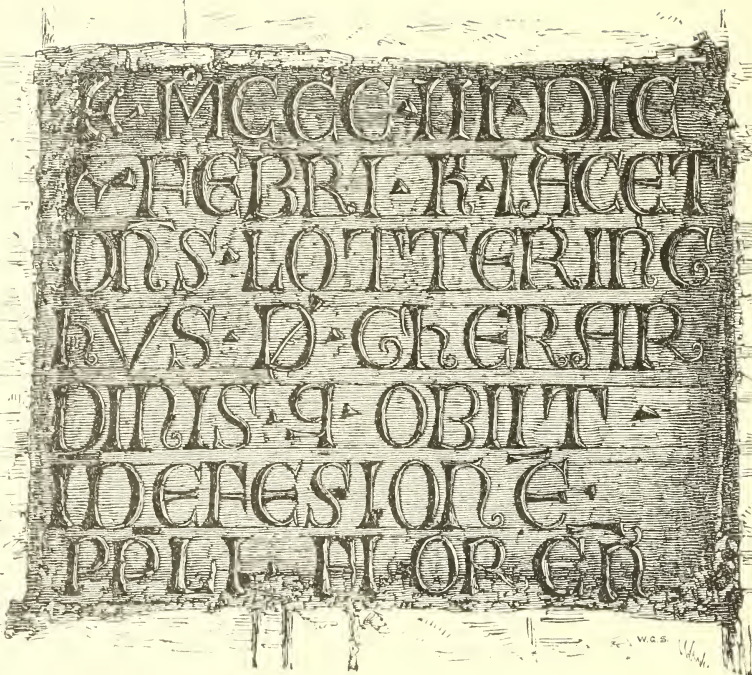 MCCC·III·DIC
FEBRI·K·IACET
DN̄S·LOTTERING
hVS·Ꝺ̸·GhERAR
DINIS·ꟼ·OBIIT·
IDEFESIONĒ·
PP̄LI FLOREN̄
W.G.S.